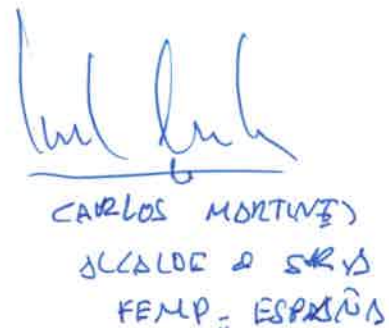 CARLOS MARTINEZ
ALCALDE D SORIA
FEMP - ESPAÑA